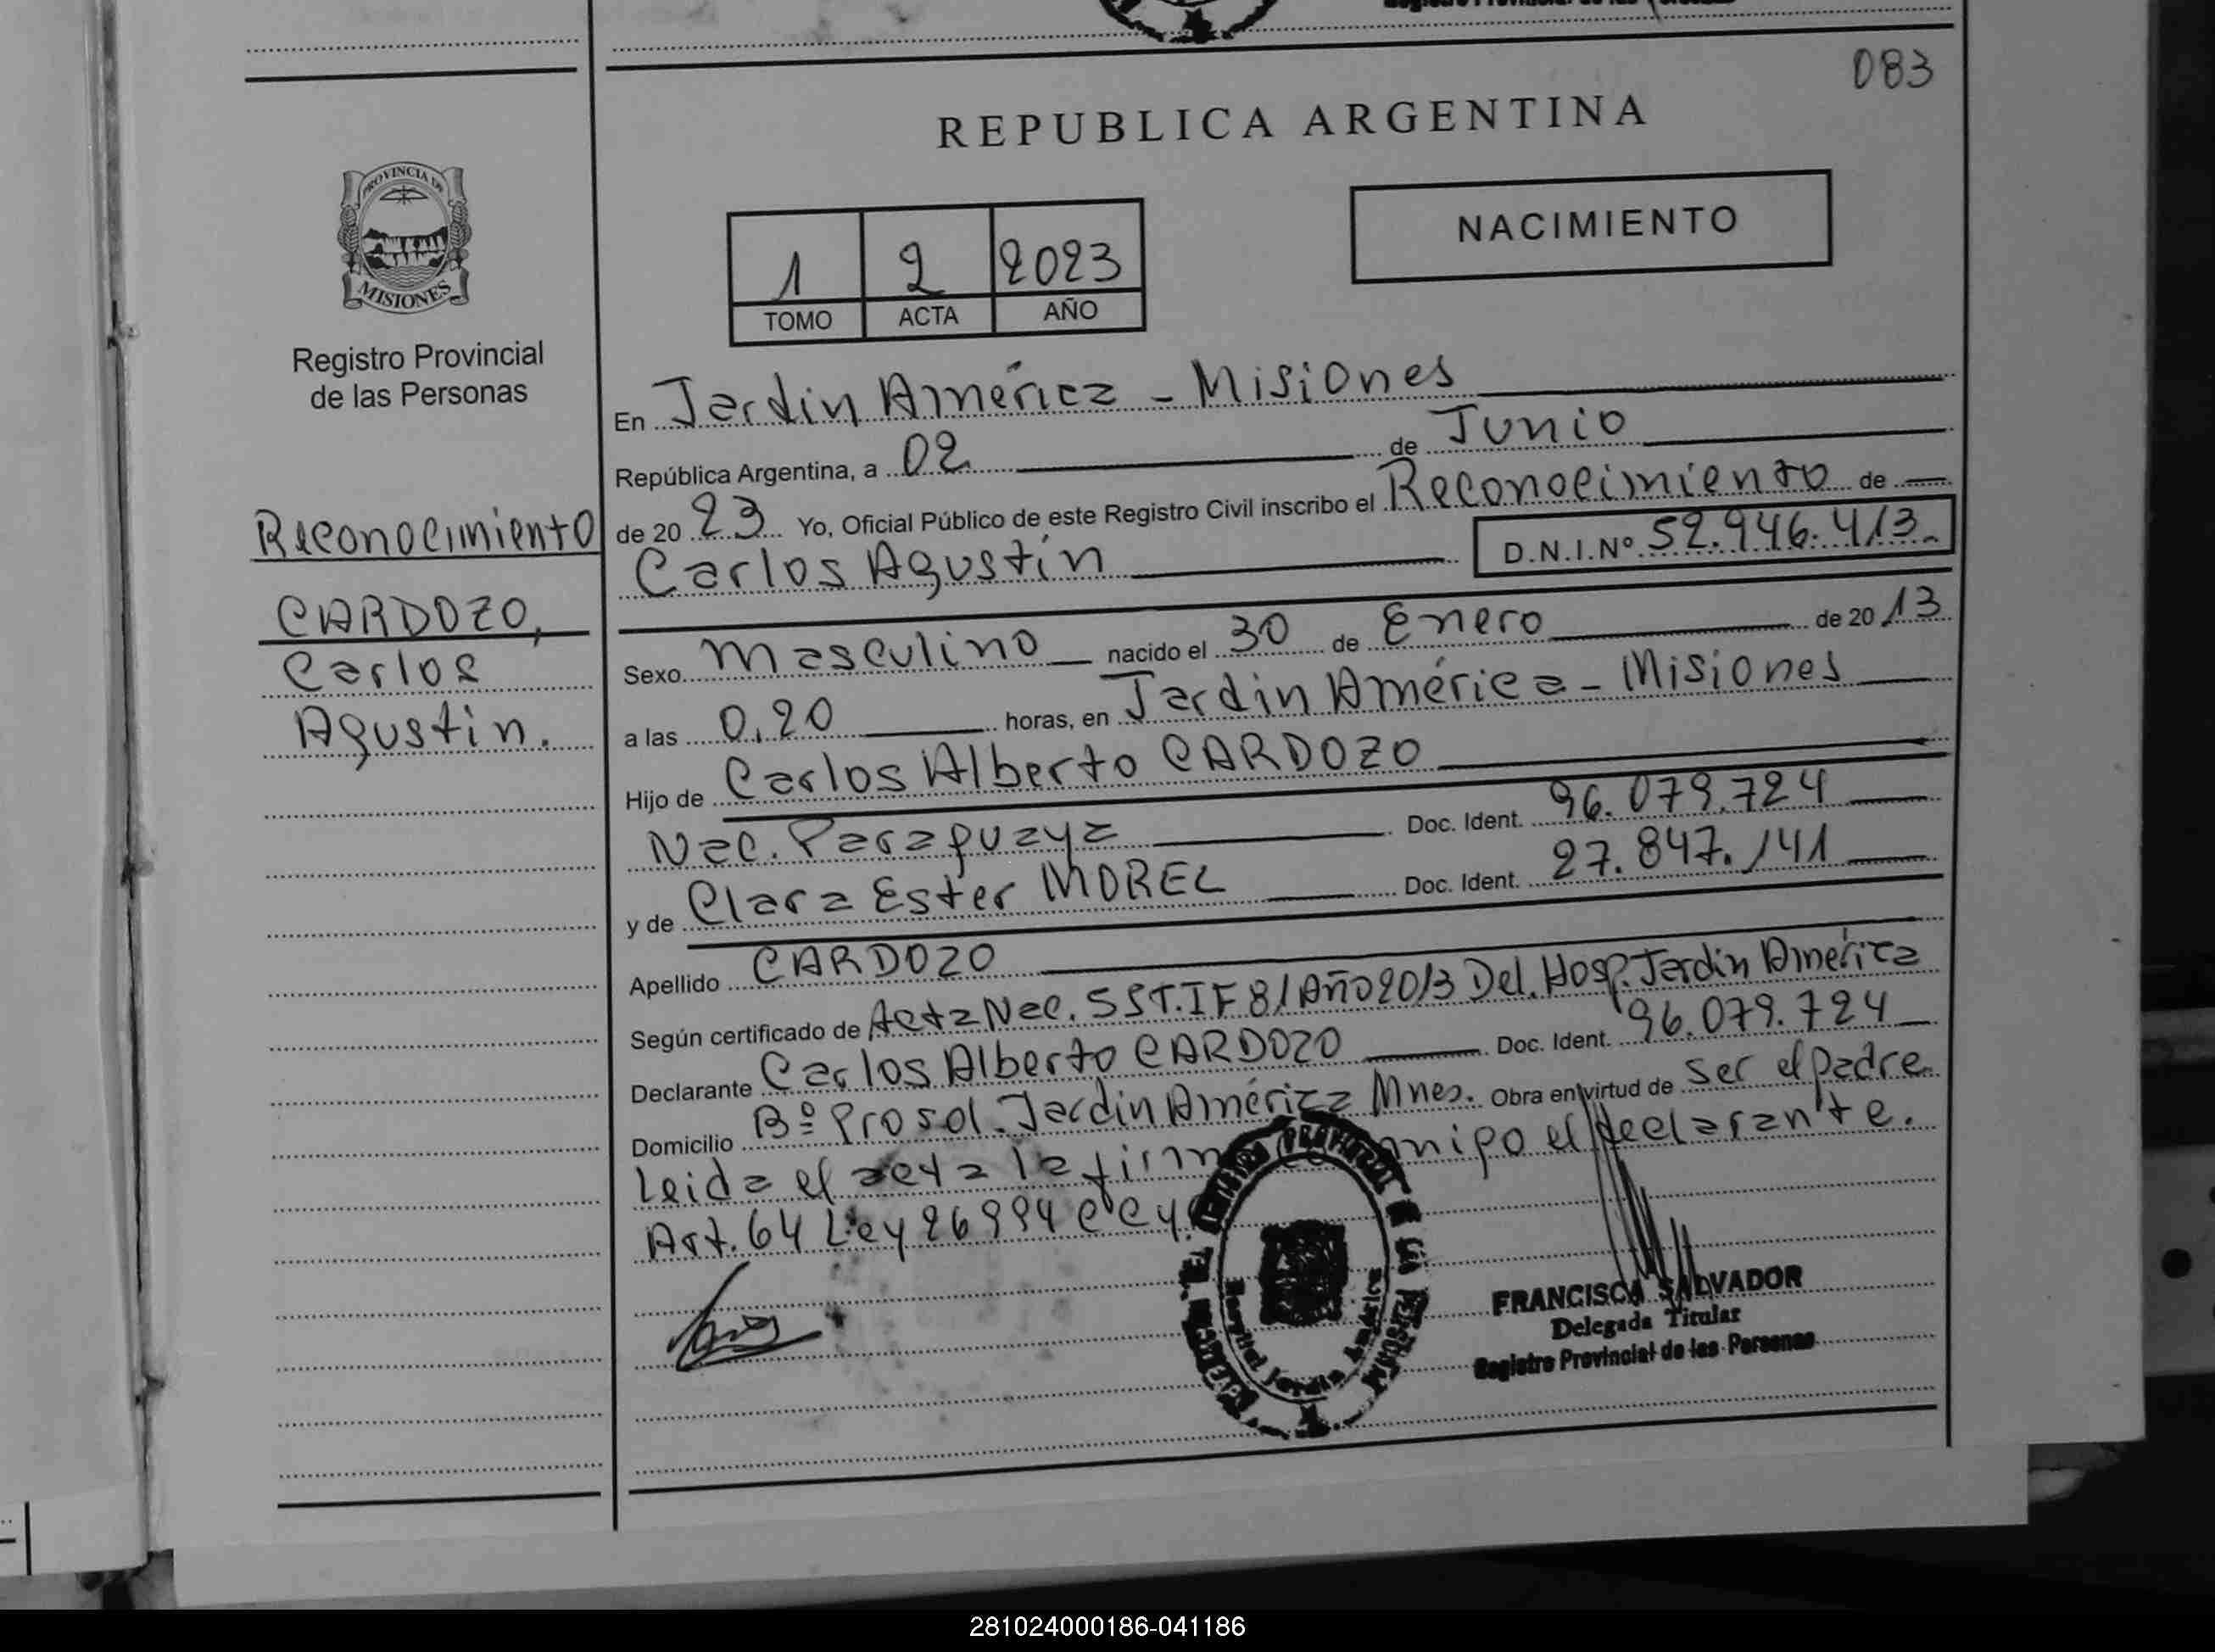 083
REPUBLICA ARGENTINA
PROVINCIA DE
MISIONES
NACIMIENTO
1 2 2023
TOMO ACTA AÑO
Registro Provincial
de las Personas
Reconocimiento
CARDOZO,
Carlos
Agustín.
En Jardín América - Misiones
República Argentina, a 02 de Junio
de 20 23 Yo, Oficial Público de este Registro Civil inscribo el Reconocimiento de
Carlos Agustín D.N.I.Nº 52.946.413.
Sexo Masculino nacido el 30 de Enero de 20 13
a las 0,20 horas, en Jardín América - Misiones
Hijo de Carlos Alberto CARDOZO
Nac. Paraguaya Doc. Ident. 96.079.724
y de Clara Ester MOREL Doc. Ident. 27.847.141
Apellido CARDOZO
Según certificado de Acta Nac. 55 T.IF 81 Año 2013 Del. Hosp. Jardín América
Declarante Carlos Alberto CARDOZO Doc. Ident. 96.079.724
Domicilio Bº Prosol. Jardín América Mnes. Obra en virtud de ser el padre
Leida el acta la firma conmigo el declarante.
Art. 64 Ley 26994 CCy
FRANCISCA SALVADOR
Delegada Titular
Registro Provincial de las Personas
281024000186-041186